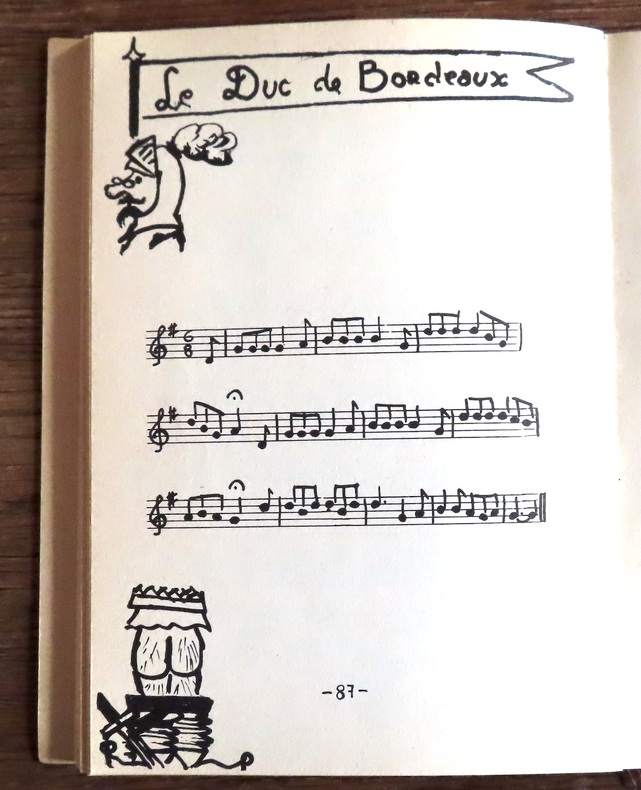 Le Duc de Bordeaux
6
8
-87-